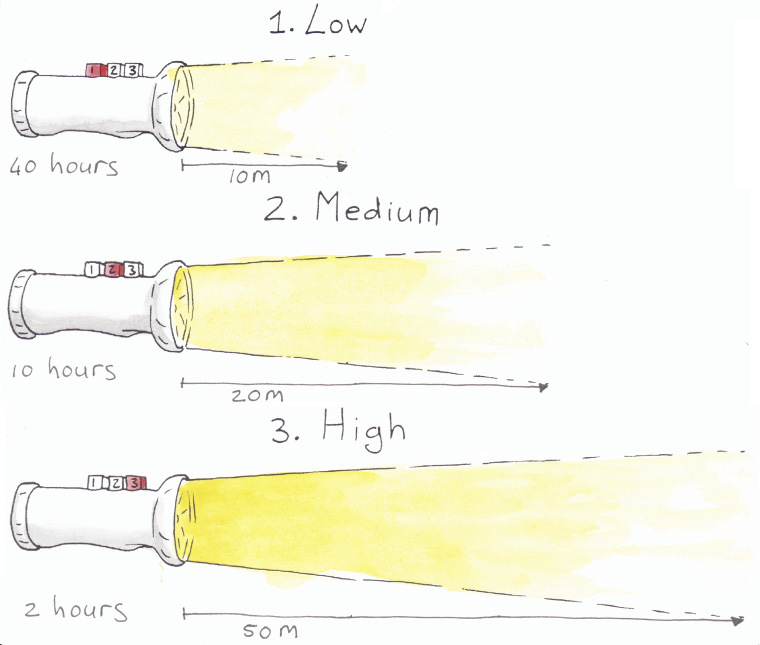 1. Low
1 2 3
40 hours
10m
2. Medium
1 2 3
10 hours
20m
3. High
1 2 3
2 hours
50m